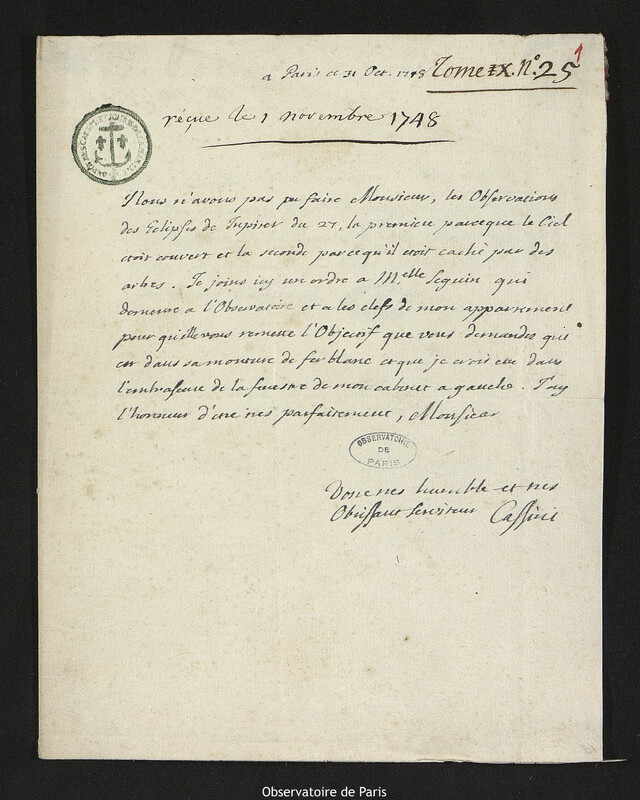 1
a Paris ce 31 Oct. 1748 Tome IX. N.º 25
reçue le 1 novembre 1748
Nous n'avons pas pu faire Monsieur, les Observations
des Eclipses de Jupiter du 27, la premiere parceque le Ciel
etoit couvert et la seconde parcequ'il etoit caché par des
arbres. Je joins icy un ordre a M.elle Seguin qui
demeure a l'Observatoire et a les clefs de mon appartement
pour qu'elle vous remette l'Objectif que vous demandez qui
est dans sa monture de fer blanc et que je crois etre dans
l'embrasure de la fenestre de mon cabinet a gauche. J'ay
l'honneur d'etre tres parfaitement, Monsieur
OBSERVATOIRE
DE
PARIS
Votre tres humble et tres
Obeissant Serviteur Cassini
Observatoire de Paris